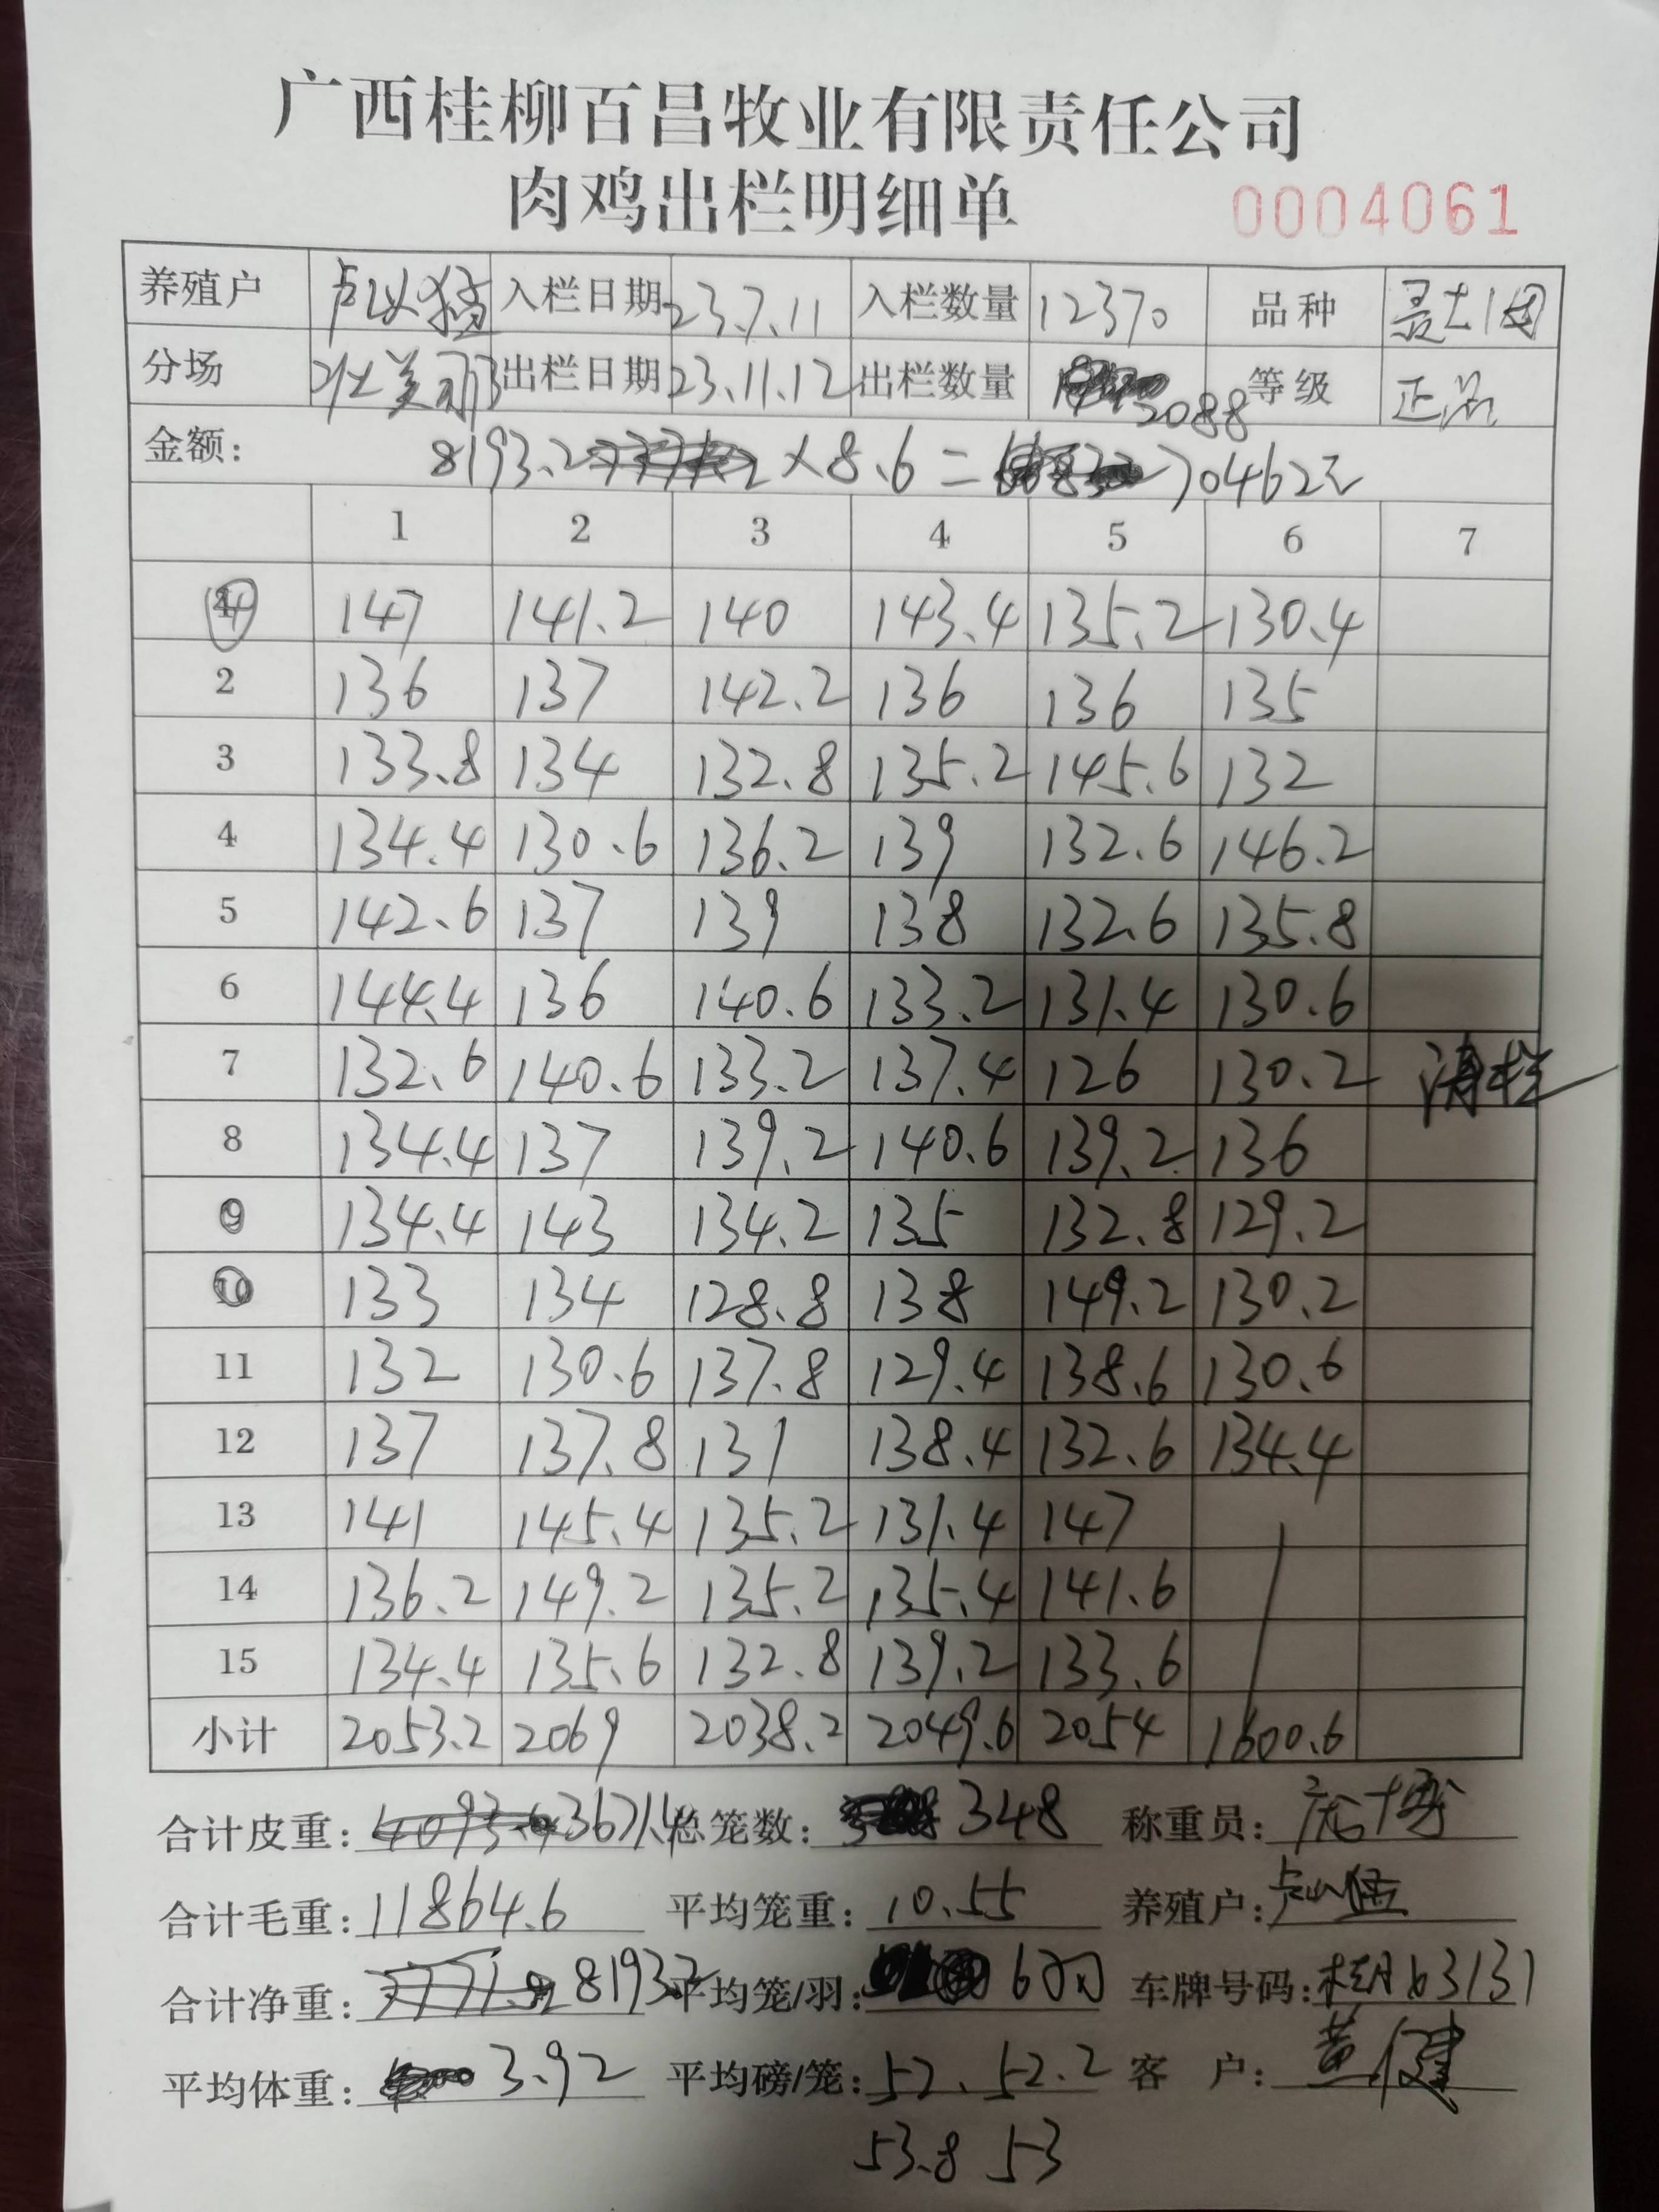 广西桂柳百昌牧业有限责任公司
肉鸡出栏明细单 0004061
养殖户 入栏日期 23.7.11 入栏数量 12370 品种
分场 出栏日期 23.11.12 出栏数量 2088 等级 正品
金额: 8193.2 ×8.6= 70462元
1 2 3 4 5 6 7
147 141.2 140 143.4 135.2 130.4
2 136 137 142.2 136 136 135
3 133.8 134 132.8 135.2 145.6 132
4 134.4 130.6 136.2 139 132.6 146.2
5 142.6 137 139 138 132.6 135.8
6 144.4 136 140.6 133.2 131.4 130.6
7 132.6 140.6 133.2 137.4 126 130.2 清栏
8 134.4 137 139.2 140.6 139.2 136
9 134.4 143 134.2 135 132.8 129.2
10 133 134 128.8 138 149.2 130.2
11 132 130.6 137.8 129.4 138.6 130.6
12 137 137.8 131 138.4 132.6 134.4
13 141 145.4 135.2 131.4 147
14 136.2 149.2 135.2 135.4 141.6
15 134.4 135.6 132.8 139.2 133.6
小计 2053.2 2069 2038.2 2049.6 2054 1600.6
合计皮重: 3671.4 总笼数: 348 称重员:
合计毛重: 11864.6 平均笼重: 10.55 养殖户:
合计净重: 8193.2 平均笼/羽: 6 车牌号码: 63131
平均体重: 3.92 平均磅/笼: 52. 52.2 客 户: 黄健
53.8 53